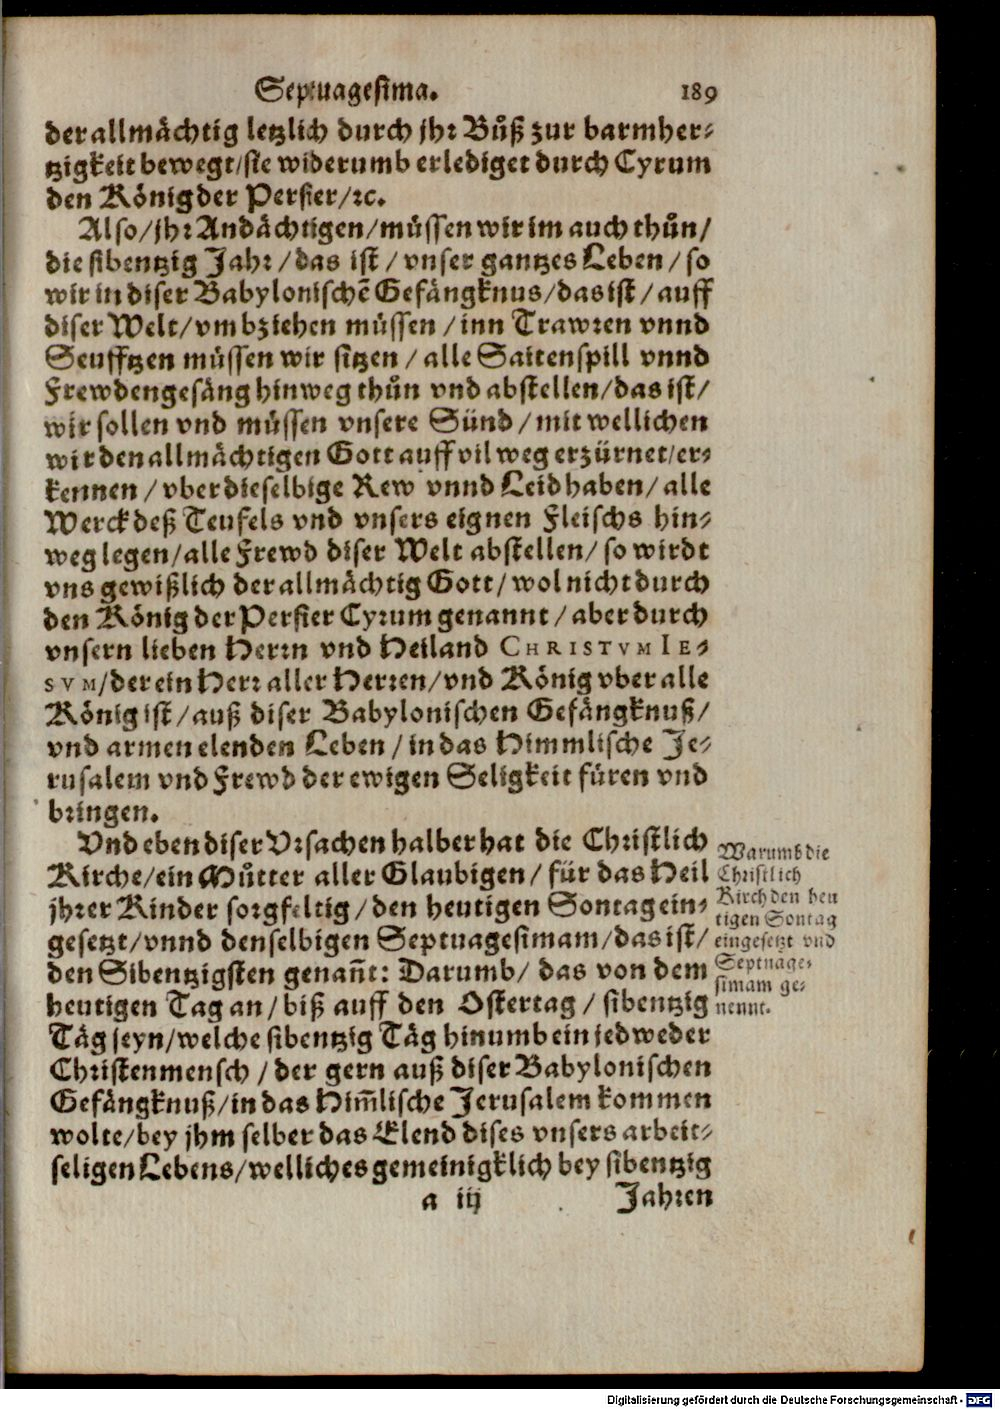 Septuagesima. 189
der allmächtig letzlich durch jhr Bůß zur barmher-
tzigkeit bewegt/sie widerumb erlediget durch Cyrum
den König der Persier/ꝛc.
Also/jhr Andächtigen/müssen wir im auch thůn/
die sibentzig Jahr/das ist/vnser gantzes Leben/so
wir in diser Babylonischẽ Gefängknus/das ist/auff
diser Welt/vmbziehen müssen/inn Trawren vnnd
Seufftzen müssen wir sitzen/alle Saitenspill vnnd
Frewdengesäng hinweg thůn vnd abstellen/das ist/
wir sollen vnd müssen vnsere Sünd/mit wellichen
wir den allmächtigen Gott auff vil weg erzürnet/er-
kennen/vber dieselbige Rew vnnd Leid haben/alle
Werck deß Teufels vnd vnsers eignen Fleischs hin-
weg legen/alle Frewd diser Welt abstellen/so wirdt
vns gewißlich der allmächtig Gott/wol nicht durch
den König der Persier Cyrum genannt/aber durch
vnsern lieben Herrn vnd Heiland CHRISTVM IE-
SVM/der ein Herr aller Herren/vnd König vber alle
König ist/auß diser Babylonischen Gefängknuß/
vnd armen elenden Leben/in das Himmlische Je-
rusalem vnd Frewd der ewigen Seligkeit füren vnd
bringen.
Vnd eben diser Vrsachen halber hat die Christlich
Kirche/ein Můtter aller Glaubigen/für das Heil
jhrer Kinder sorgfeltig/den heutigen Sontag ein-
gesetzt/vnnd denselbigen Septuagesimam/das ist/
den Sibentzigsten genañt: Darumb/das von dem
heutigen Tag an/biß auff den Ostertag/sibentzig
Täg seyn/welche sibentzig Täg hinumb ein jedweder
Christenmensch/der gern auß diser Babylonischen
Gefängknuß/in das Him̃lische Jerusalem kommen
wolte/bey jhm selber das Elend dises vnsers arbeit-
seligen Lebens/welliches gemeinigklich bey sibentzig
a iij Jahren
Warumb die
Christlich
Kirch den heu
tigen Sontag
eingesetzt vnd
Septuage-
simam ge-
nennt.
Digitalisierung gefördert durch die Deutsche Forschungsgemeinschaft - DFG